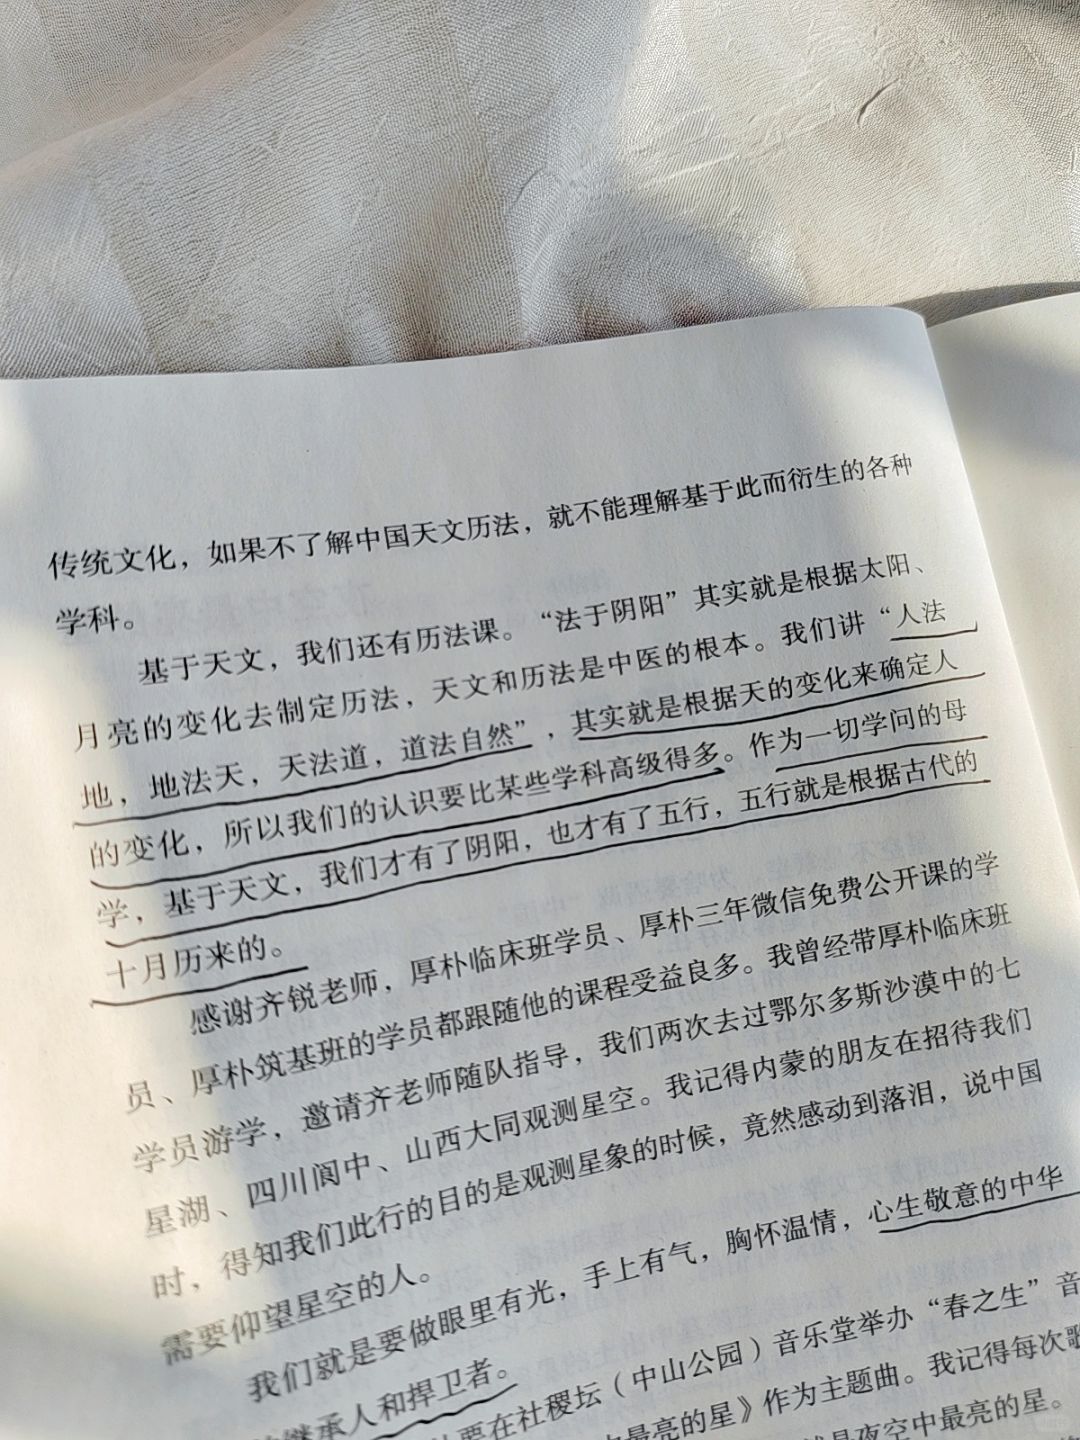 传统文化，如果不了解中国天文历法，就不能理解基于此而衍生的各种
学科。
基于天文，我们还有历法课。“法于阴阳”其实就是根据太阳、
月亮的变化去制定历法，天文和历法是中医的根本。我们讲“人法
地，地法天，天法道，道法自然”，其实就是根据天的变化来确定人
的变化，所以我们的认识要比某些学科高级得多。作为一切学问的母
学，基于天文，我们才有了阴阳，也才有了五行，五行就是根据古代的
十月历来的。
感谢齐锐老师，厚朴临床班学员、厚朴三年微信免费公开课的学
员、厚朴筑基班的学员都跟随他的课程受益良多。我曾经带厚朴临床班
学员游学，邀请齐老师随队指导，我们两次去过鄂尔多斯沙漠中的七
星湖、四川阆中、山西大同观测星空。我记得内蒙的朋友在招待我们
时，得知我们此行的目的是观测星象的时候，竟然感动到落泪，说中国
需要仰望星空的人。
我们就是要做眼里有光，手上有气，胸怀温情，心生敬意的中华
继承人和捍卫者。
要在社稷坛（中山公园）音乐堂举办“春之生”音
中最亮的星》作为主题曲。我记得每次歌
是夜空中最亮的星。